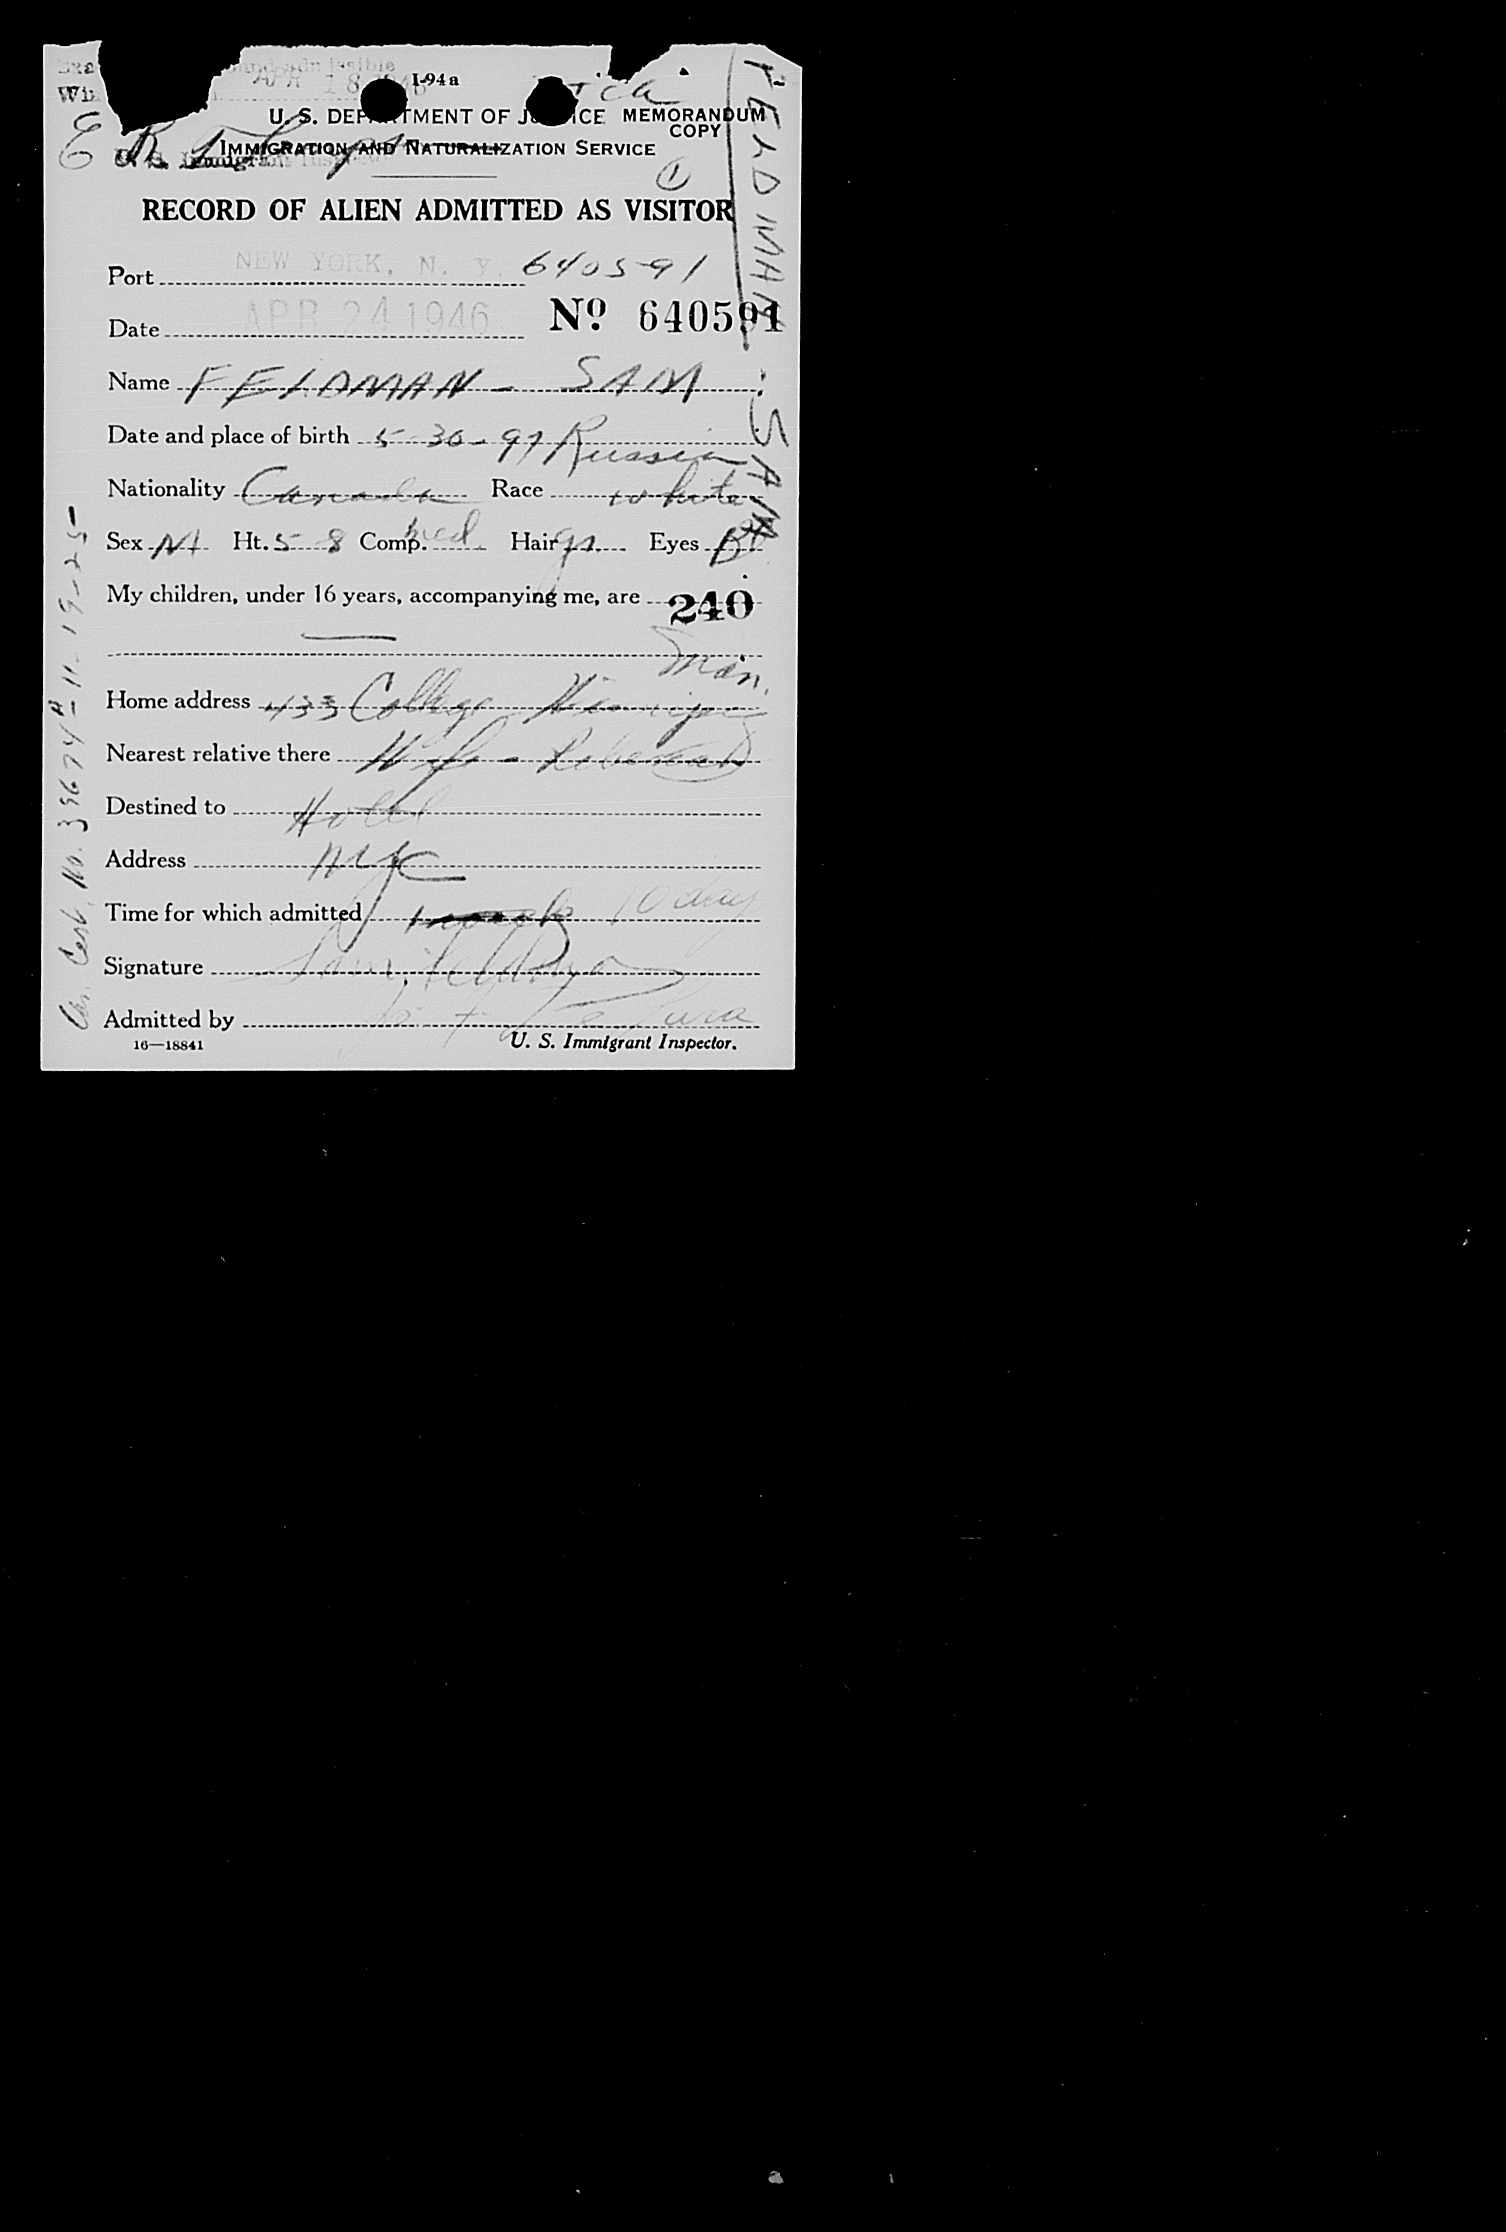 and admissible
APR 18 1946
I-94a
U. S. DEPARTMENT OF JUSTICE MEMORANDUM
COPY
IMMIGRATION AND NATURALIZATION SERVICE
U. S. Immigrant Inspector
1
RECORD OF ALIEN ADMITTED AS VISITOR
Port NEW YORK, N. Y. 640591
Date APR 24 1946 No. 640591
Name FELDMAN - SAM
Date and place of birth 5-30-97 Russia
Nationality Canada Race white
Sex M Ht. 5 8 Comp. med Hair gr. Eyes Br
My children, under 16 years, accompanying me, are 240
—
Man.
Home address 433 College Winnipeg
Nearest relative there Wife - Rebecca
Destined to Hotel
Address NYC
Time for which admitted 10 day
Signature Sam Feldman
Admitted by
16—18841 U. S. Immigrant Inspector.
FELDMAN: SAM
Can. Cert. No. 39674 A - 11-19-25